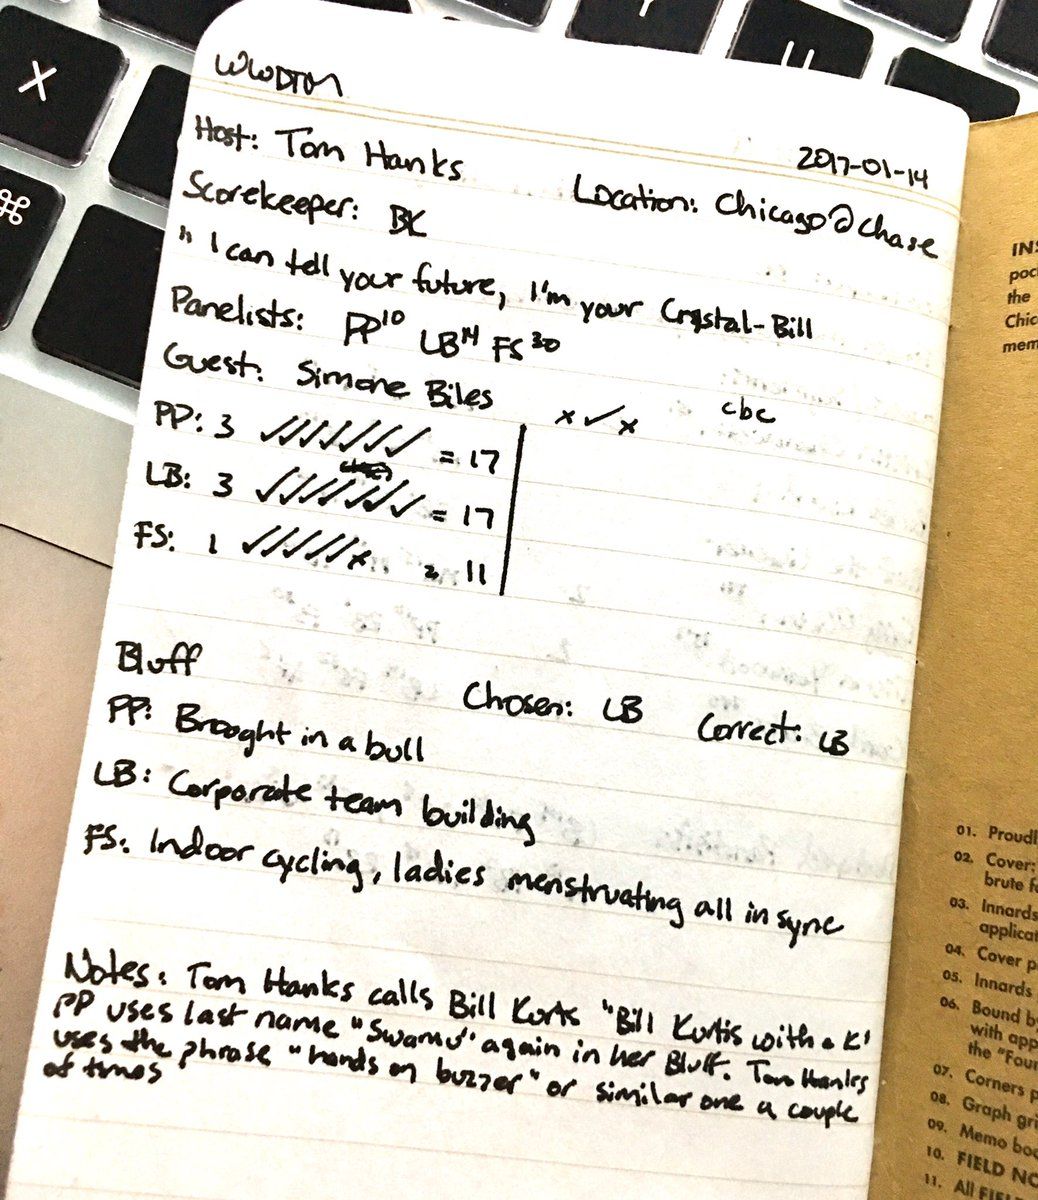 X
⌘
WWDTM
2017-01-14
Host: Tom Hanks
Location: Chicago @ Chase
Scorekeeper: BK
" I can tell your future, I'm your Crystal-Bill
Panelists: PP10 LB14 FS30
Guest: Simone Biles
× ✓ ×
cbc
PP: 3 ✓✓✓✓✓✓✓ = 17
LB: 3 ✓✓✓✓✓✓✓ = 17
FS: 1 ✓✓✓✓✓× = 11
Bluff
Chosen: LB
Correct: LB
PP: Brought in a bull
LB: Corporate team building
FS: Indoor cycling, ladies menstruating all in sync
Notes: Tom Hanks calls Bill Kurtis "Bill Kurtis with a K"
PP uses last name "Swamu" again in her Bluff. Tom Hanks
uses the phrase "hands on buzzer" or similar one a couple
of times
INS
poc
the
Chic
mem
01. Proudl
02. Cover:
brute fo
03. Innards
applicat
04. Cover p
05. Innards
06. Bound by
with app
the "Four
07. Corners p
08. Graph gri
09. Memo boo
10. FIELD NO
11. All FIEL